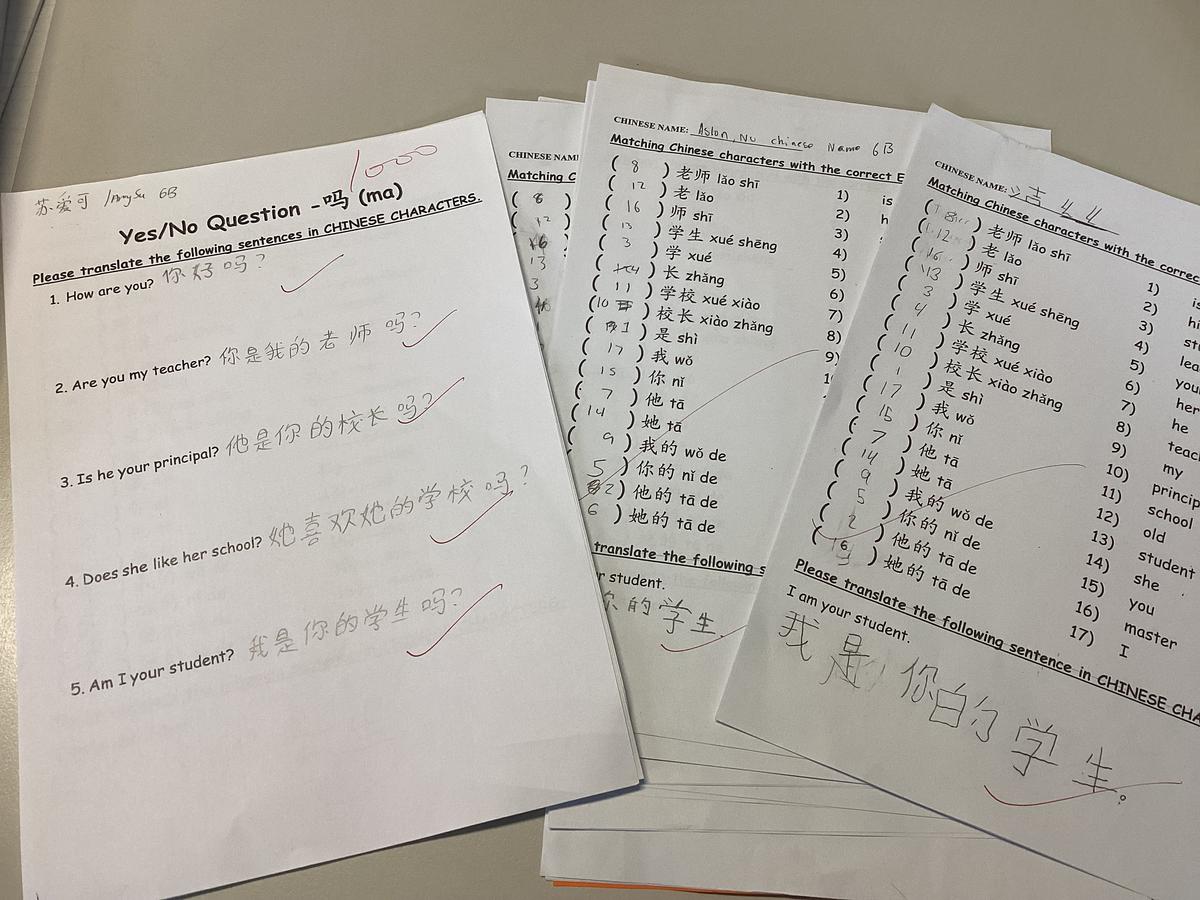 苏爱可 6B
1000
Yes/No Question -吗 (ma)
Please translate the following sentences in CHINESE CHARACTERS.
1. How are you? 你好吗?
2. Are you my teacher? 你是我的老师吗?
3. Is he your principal? 他是你的校长吗?
4. Does she like her school? 她喜欢她的学校吗?
5. Am I your student? 我是你的学生吗?
CHINESE NAM
Matching C
( 8 )
( 12 )
16
13
3
CHINESE NAME: Aslon, No chinese Name 6B
Matching Chinese characters with the correct E
( 8 ) 老师 lǎo shī 1) is
( 12 ) 老 lǎo 2) h
( 16 ) 师 shī 3)
( 13 ) 学生 xué shēng 4)
( 3 ) 学 xué
( 4 ) 长 zhǎng 5)
( 11 ) 学校 xué xiào 6)
( 10 ) 校长 xiào zhǎng 7)
( 1 ) 是 shì 8)
( 17 ) 我 wǒ 9)
( 15 ) 你 nǐ 1
( 7 ) 他 tā
( 14 ) 她 tā
( 9 ) 我的 wǒ de
( 5 ) 你的 nǐ de
( 2 ) 他的 tā de
( 6 ) 她的 tā de
translate the following s
r student.
你的学生.
CHINESE NAME:
Matching Chinese characters with the correc
( 8 ) 老师 lǎo shī 1) is
( 12 ) 老 lǎo 2) hi
( 16 ) 师 shī 3) st
( 13 ) 学生 xué shēng 4) lea
( 3 ) 学 xué 5) you
( 4 ) 长 zhǎng 6) her
( 11 ) 学校 xué xiào 7) he
( 10 ) 校长 xiào zhǎng 8) teac
( 1 ) 是 shì 9) my
( 17 ) 我 wǒ 10) princip
( 15 ) 你 nǐ 11) school
( 7 ) 他 tā 12) old
( 14 ) 她 tā 13) student
( 9 ) 我的 wǒ de 14) she
( 5 ) 你的 nǐ de 15) you
( 2 ) 他的 tā de 16) master
( 6 ) 她的 tā de 17) I
Please translate the following sentence in CHINESE CHA
I am your student.
我是你的学生。